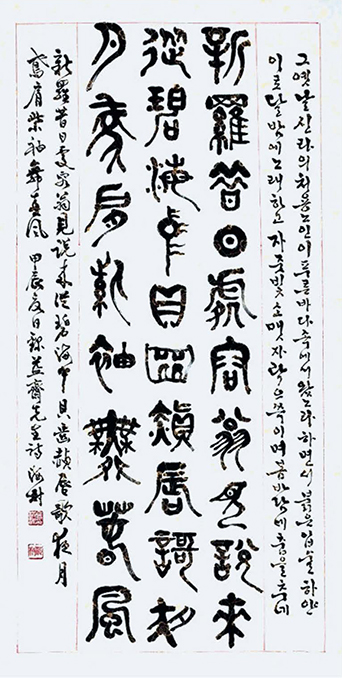 그 옛날 신라의 처용노인이 푸른바다 속에서 왔노라 하면서 붉은 입술 하얀
이로 달밤에 노래하고 자주빛 소맷자락 으쓱이며 봄바람에 춤을 추네
新羅昔日處容翁見說來
從碧海中貝齒赬脣歌夜
月鳶肩紫袖舞春風
新羅昔日處容翁見說來從碧海中貝齒赬脣歌夜月
鳶肩紫袖舞春風 甲辰夏日錄益齋先生詩